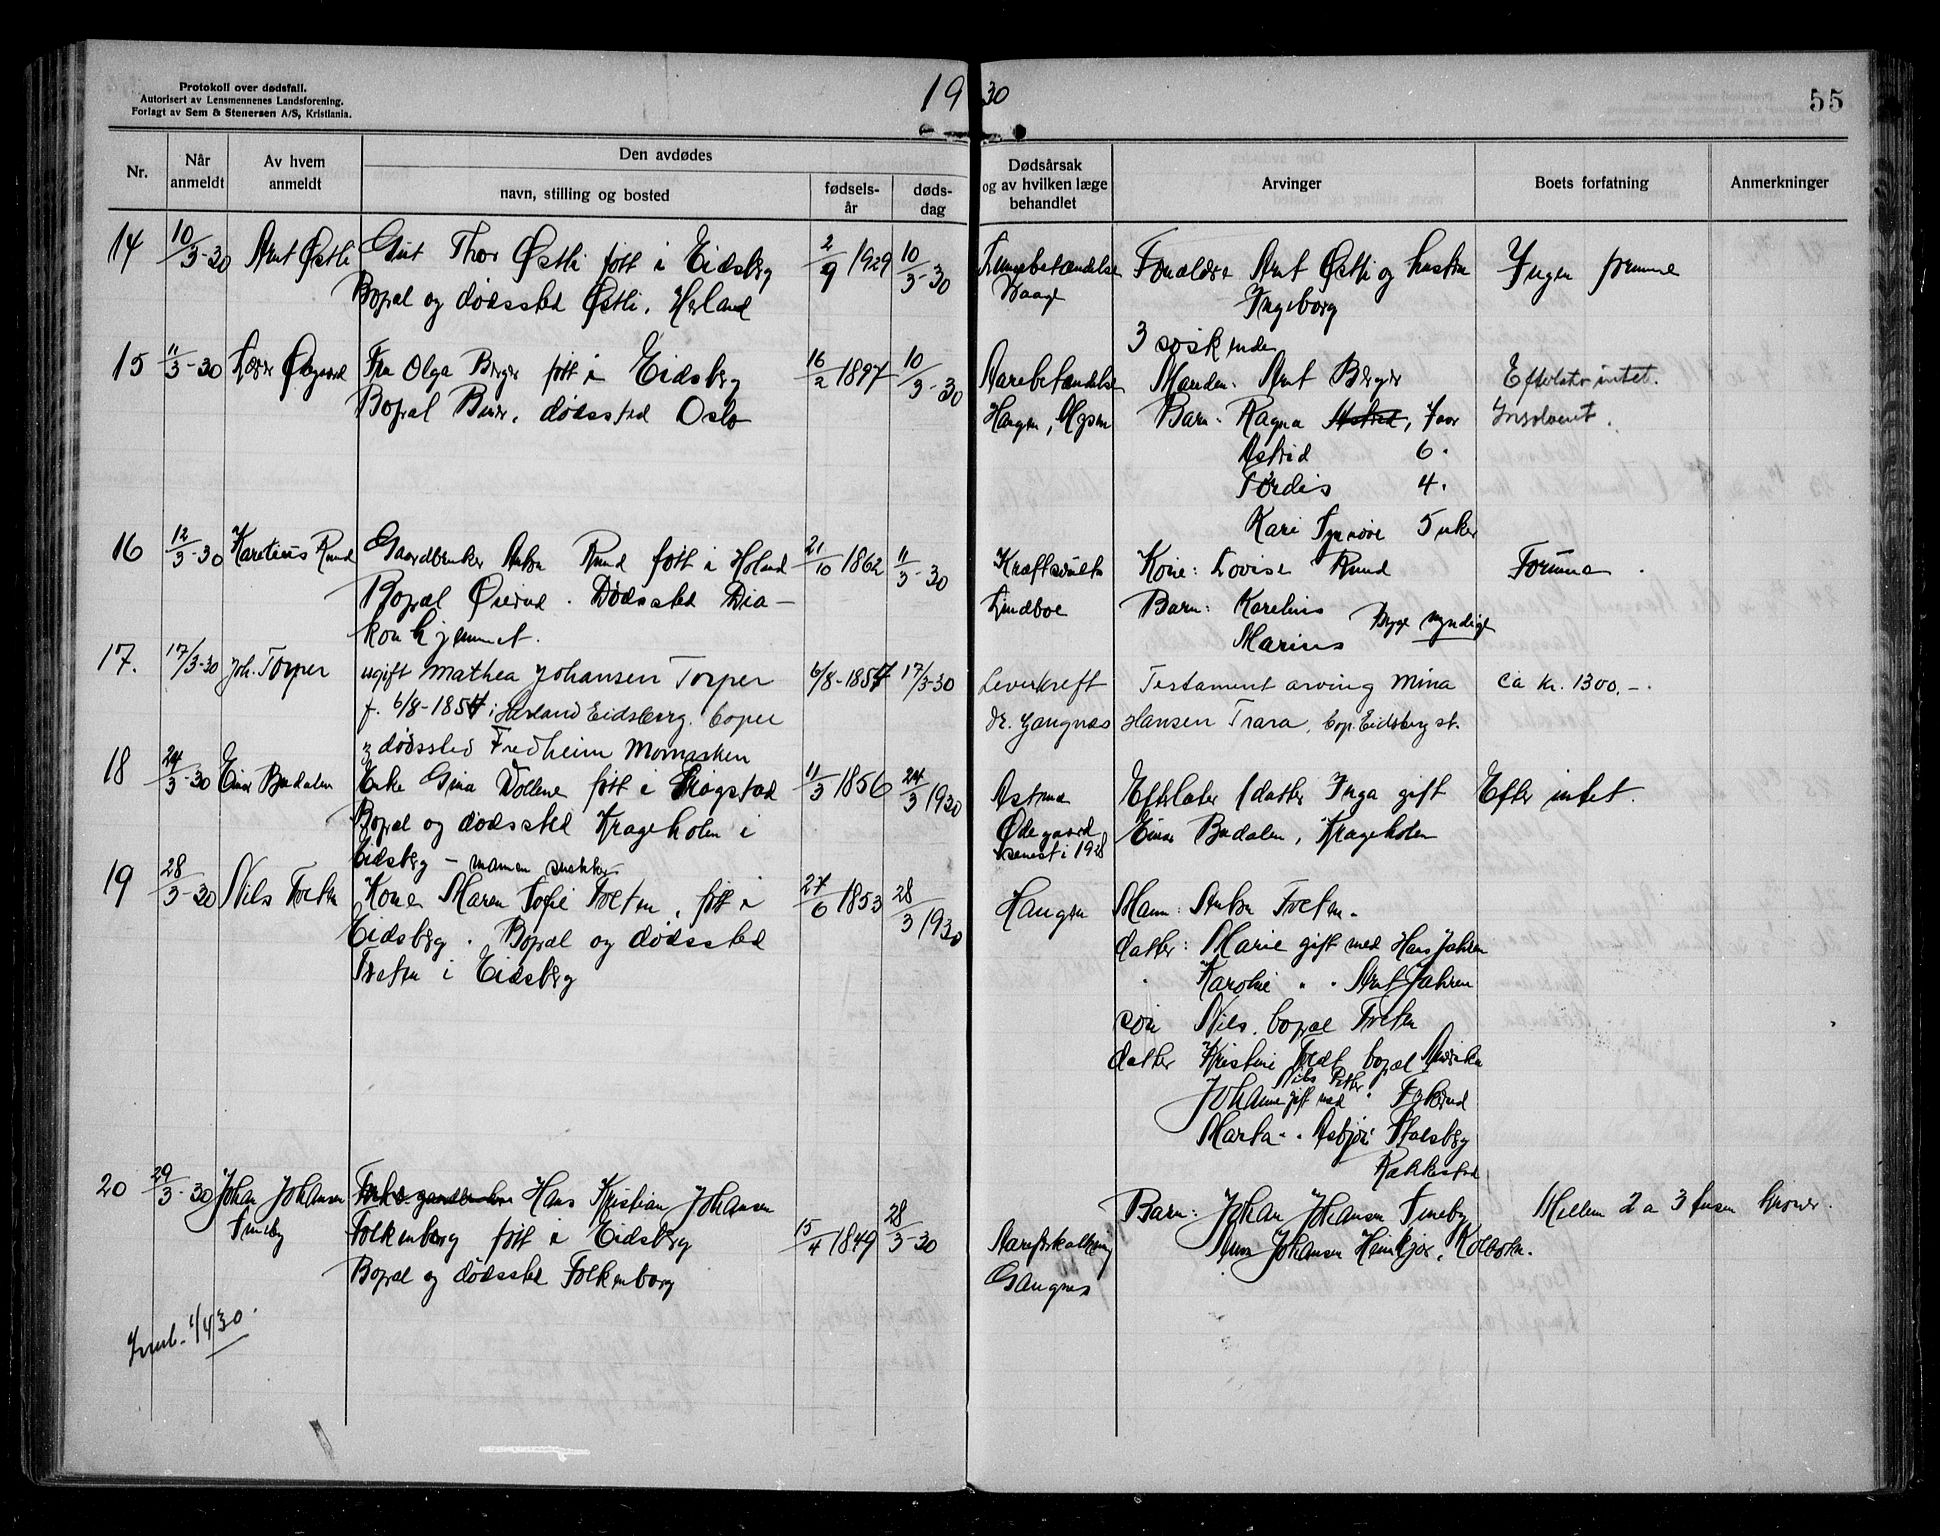 Protokoll over dødsfall.
Autorisert av Lensmennenes Landsforening.
Forlagt av Sem & Stenersen A/S, Kristiania.
1930
55
Nr.
Når anmeldt
Av hvem anmeldt
Den avdødes
navn, stilling og bosted
fødsels-år
døds-dag
Dødsårsak og av hvilken læge behandlet
Arvinger
Boets forfatning
Anmerkninger
14 10/3-30 Arnt Østli Gut Thor Østli født i Eidsberg 2/9 1929 10/3-30 Lungebetændelse Forældre Arnt Østli og hustru Ingen formue
Bopæl og dødssted Østli, Herland Ingeborg
3 søskende
15 11/3-30 Fru Olga Berger født i Eidsberg 16/2 1897 10/3-30 Aarebetændelse Manden: Arnt Berger Efterlater intet.
Bopæl dødssted Oslo Haugen, Mysen Barn: Ragna Astrid, 7 aar Insolvent.
Astrid 6 "
Tordis 4 "
Kari Synnøve 5 uker
16 12/3-30 Karelius Rud Gaardbruker Anton Rud født i Høland 21/10 1862 11/3-30 Kræftsvulst Kone: Lovise Rud Formue
Bopæl Dødssted Dia- Lindboe Barn: Karelius
konhjemmet. Marius Begge myndige
17. 17/3-30 Joh. Torper ugift Mathea Johansen Torper 6/8-1854 17/3-30 Leverkreft Testament arving Mina ca kr. 1300.-.
f. 6/8-1854 i Herland Eidsberg. boper dr. Gangnæs Hansen Trara, bop. Eidsberg st.
og dødssted Fredheim Momarken
18 24/3-30 Einar Budalen Enke Gina Vollene født i Skiptvet 11/3 1856 24/3 1930 Astma Efterlater 1 datter Inga gift Efter intet.
Bopæl og dødssted Krageholen i Ødegaard Einar Budalen, Krageholen
Eidsberg - mannen snekker senest i 1928
19 28/3-30 Nils Treten Kone Maren Sofie Treten, født i 27/6 1853 28/3 1930 Haugen Mann: Anton Treten.
Eidsberg. Bopæl og dødssted datter: Marie gift med Hans Jahren
Treten i Eidsberg " Karoline " " Arnt Jahren
søn Nils, bopæl Treten
datter Kristine født bopæl
Nils Petter
Johanne gift med
Marta " "
Rakkestad
20 29/3-30 Johan Johansen Hans Kristian Johansen Barn: Johan Johansen Tineby Mellem 2 a 3 tusen kroner.
Tineby Folkenborg født i Eidsberg 15/4 1849 28/3-30 Aareforkalkning Johansen Heinkjær, Kolbotn.
Bopæl og dødssted Folkenborg Gangnæs
Innb. 1/4 30.